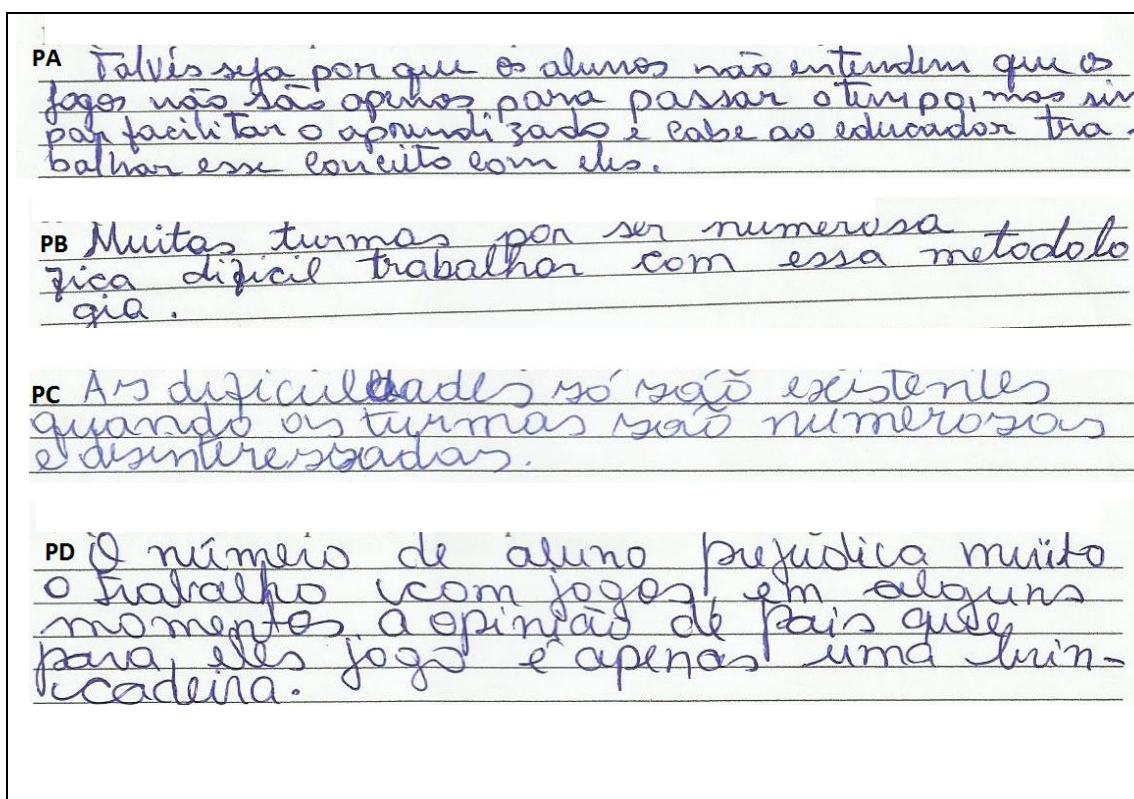 PA Talvés seja por que os alunos não entendem que os
jogos não são apenas para passar o tempo, mas sin
par facilitar o aprendizado e cabe ao educador tra-
balhar esse conceito com eles.
PB Muitas turmas por ser numerosa
fica dificil trabalhar com essa metodolo
gia.
PC As dificuldades só são existentes
quando as turmas são numerosas
e desinteressadas.
PD O número de aluno prejudica muito
o trabalho com jogos, em alguns
momentos a opinião de pais que,
para eles jogo é apenas uma brin-
cadeira.